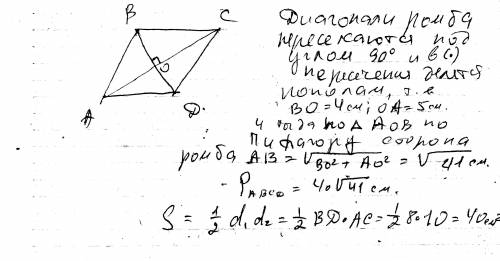 B C
A D.
Диагонали ромба
пересекаются под
углом 90° и в (.)
пересечения делятся
пополам, т.е
BO=4см; OA=5см.
и тогда по Δ AOB по
Пифагору сторона
ромба AB = √BO²+AO² = √41 см.
P_ABCD = 4·√41 см.
S = 1/2 d₁ d₂ = 1/2 BD·AC = 1/2 8·10 = 40см²